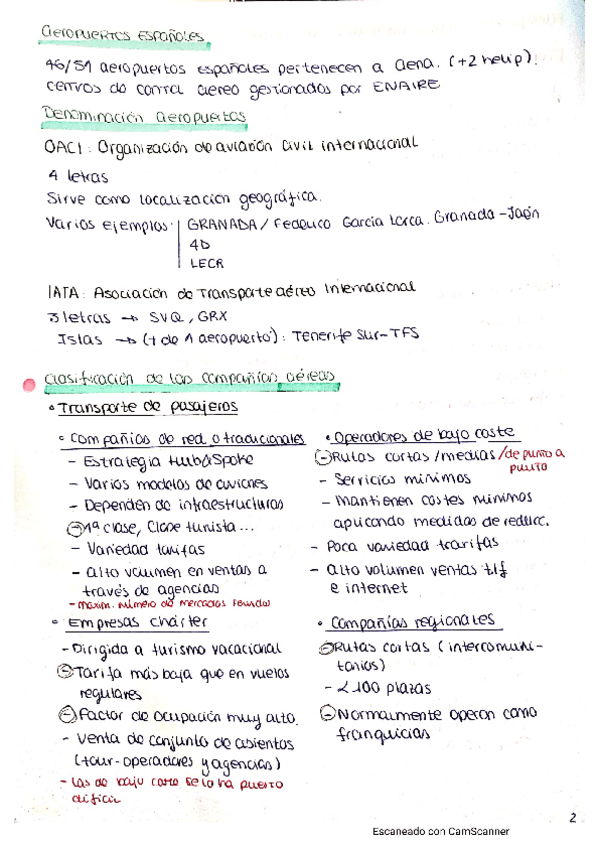 AEROPUERTOS ESPAÑOLES
46/51 aeropuertos españoles pertenecen a Aena. (+2 helip).
Centros de control aereo gestionados por ENAIRE
Denominación aeropuertos
OACI: Organización de aviación civil internacional
4 letras
Sirve como localización geográfica.
Varios ejemplos: GRANADA/Federico García Lorca. Granada-Jaén
4D
LECR
IATA: Asociación de Transporte aéreo Internacional
3 letras → SVQ, GRX
Islas → (+ de 1 aeropuerto): Tenerife Sur-TFS
Clasificación de las compañías aéreas
• Transporte de pasajeros
• Compañías de red o tradicionales
- Estrategia Hub&Spoke
- Varios modelos de aviones
- Dependen de infraestructuras
- 1ª clase, Clase turista...
- Variedad tarifas
- Alto volumen en ventas a
través de agencias
- maxim. número de mercados
• Empresas chárter
- Dirigida a turismo vacacional
- Tarifa más baja que en vuelos
regulares
- Factor de ocupación muy alto.
- Venta de conjunto de asientos
(tour-operadores y agencias)
- Las de bajo coste se lo ha puesto
dificil
• Operadores de bajo coste
- Rutas cortas/medias/de punto a
punto
- Servicios mínimos
- Mantienen costes mínimos
aplicando medidas de reducc.
- Poca variedad tarifas
- Alto volumen ventas tlf
e internet
• Compañías regionales
- Rutas cortas (intercomuni-
tarios)
- <100 plazas
- Normalmente operan como
franquicias
2
Escaneado con CamScanner